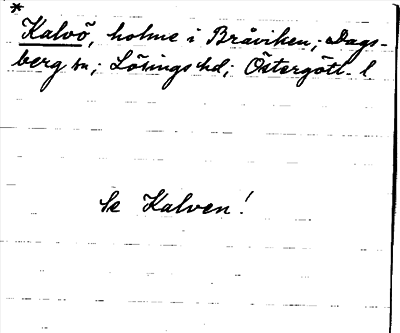 *
Kalvö, holme i Bråviken; Dags-
berg sn; Lösings hd; Östergötl. l
Se Kalven!